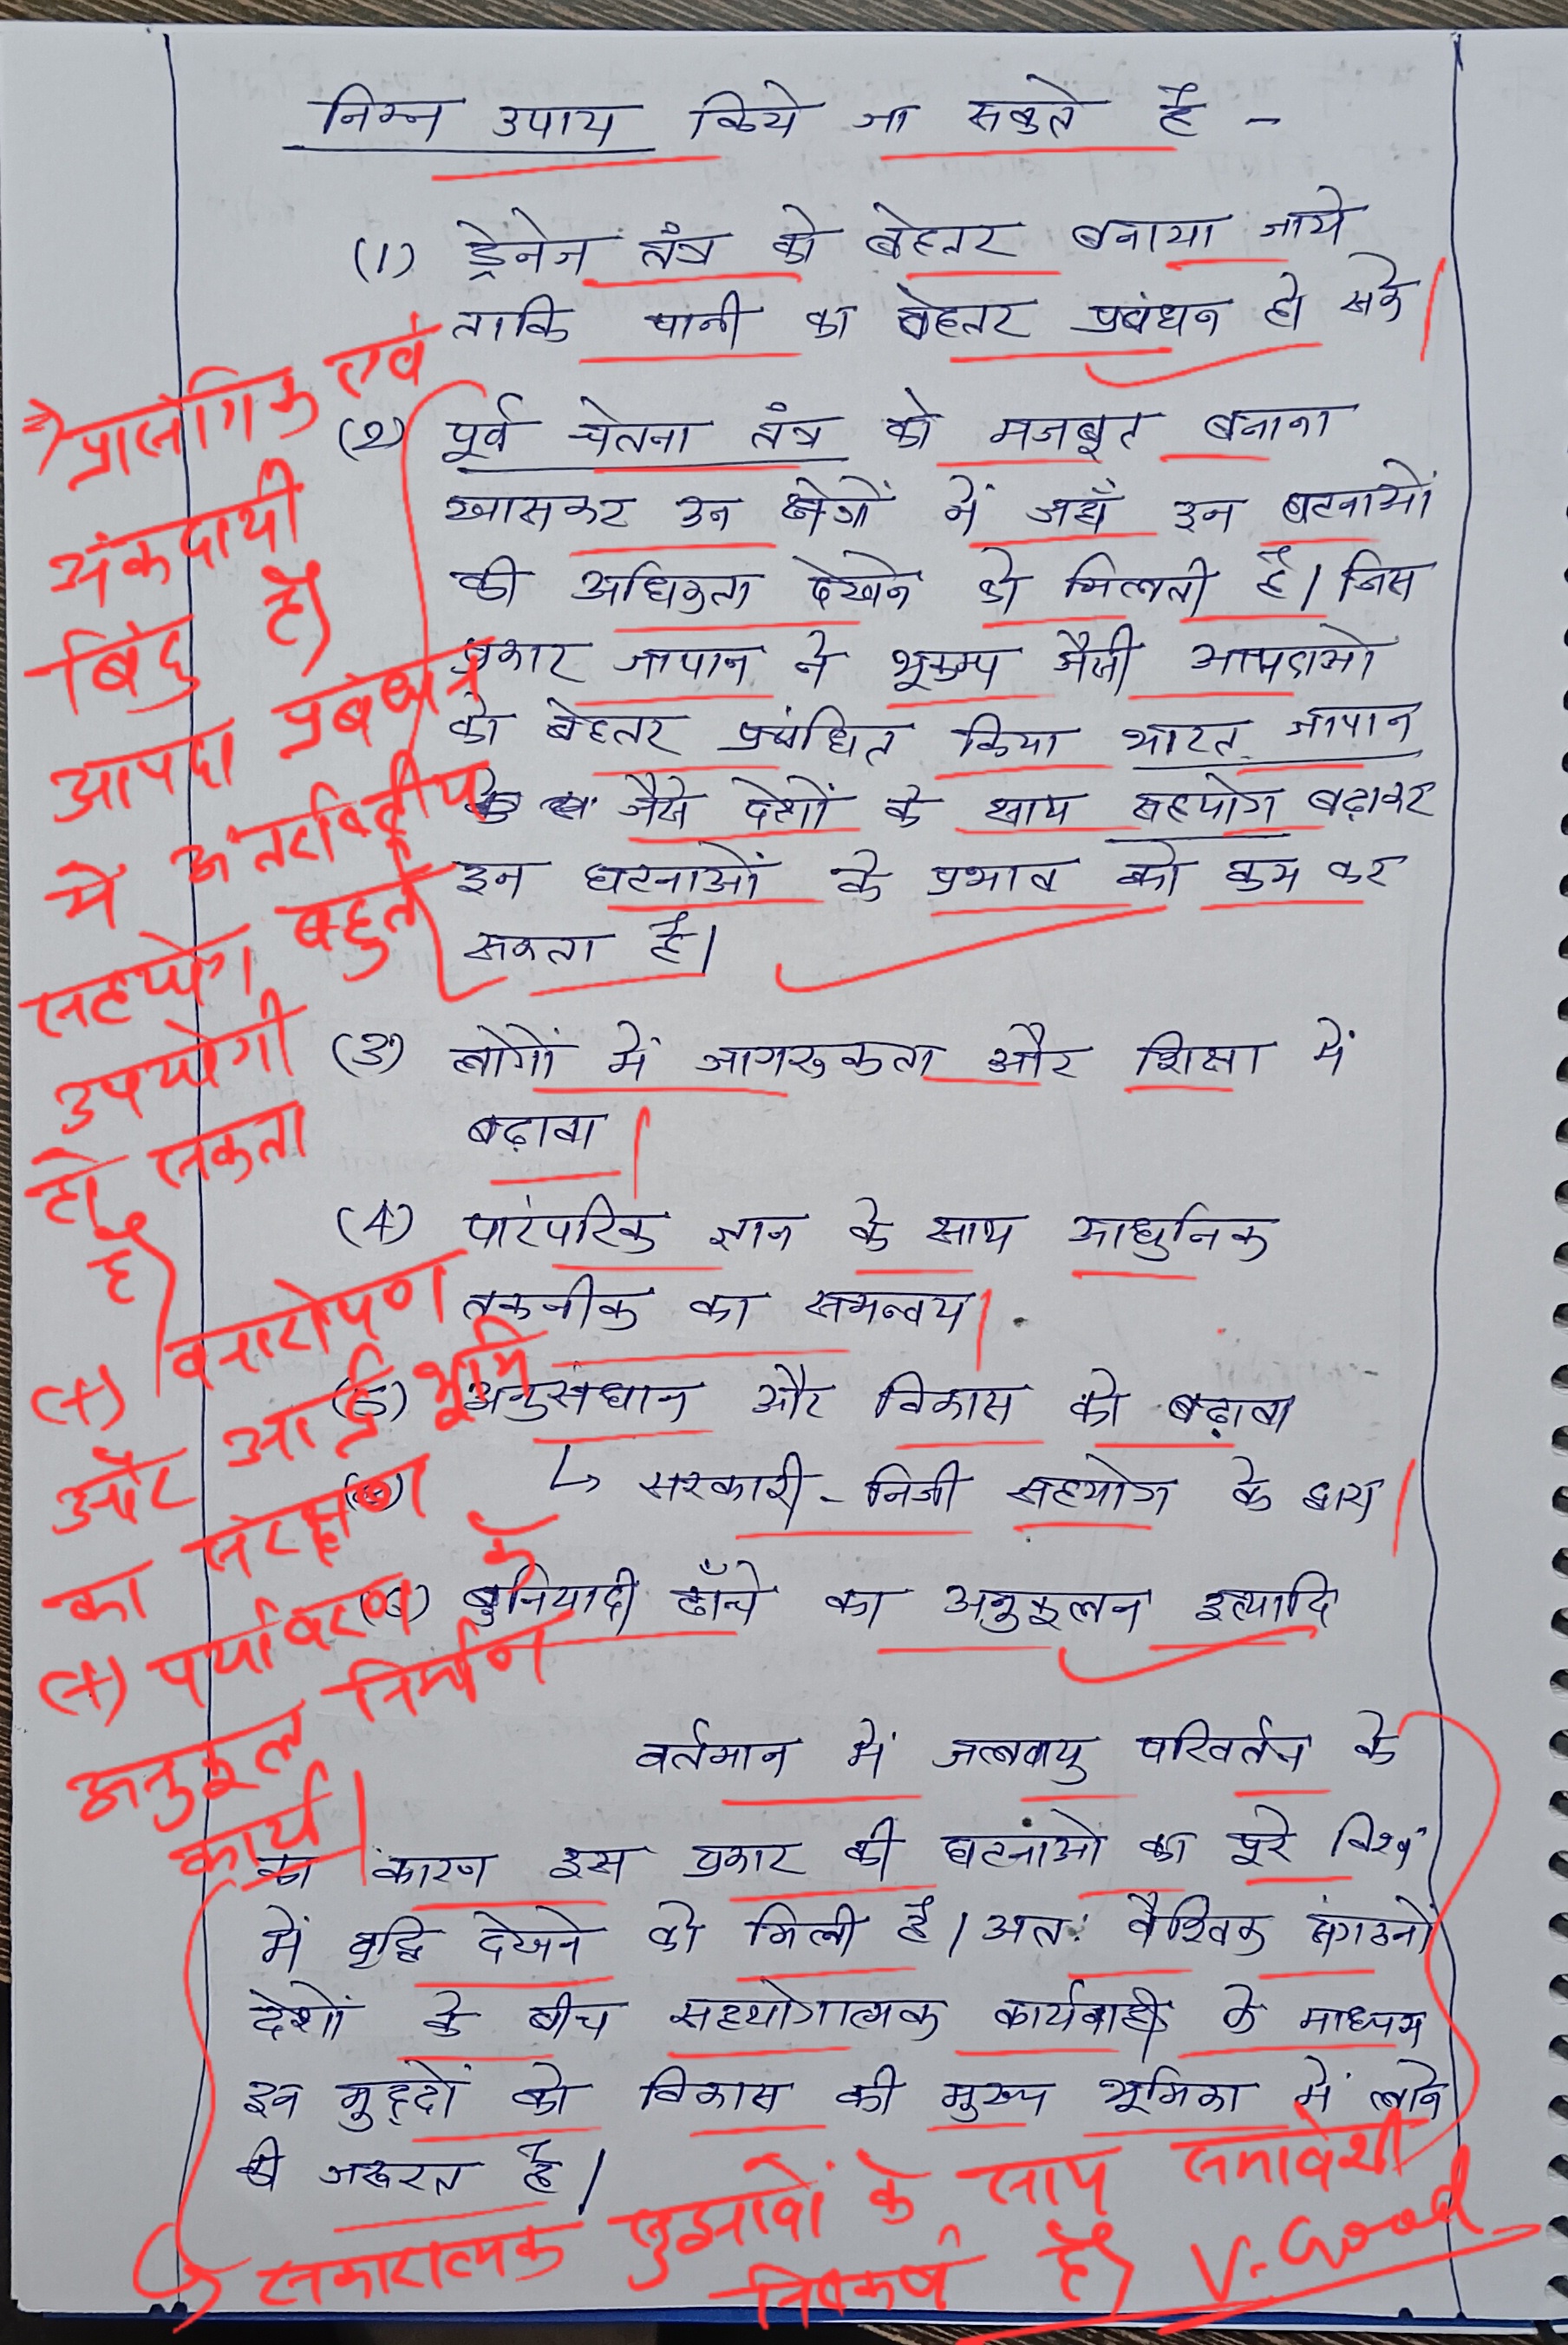 निम्न उपाय किये जा सकते है -
(1) ड्रेनेज तंत्र को बेहतर बनाया जाये
ताकि पानी का बेहतर प्रबंधन हो सके
(2) पूर्व चेतना तंत्र को मजबूत बनाना
खासकर उन क्षेत्रों में जहाँ इन घटनाओं
की अधिकता देखने को मिलती है। जिस
प्रकार जापान ने भूकम्प जैसी आपदाओ
को बेहतर प्रबंधित किया भारत जापान
जैसे देशों के साथ सहयोग बढ़ाकर
इन घटनाओं के प्रभाव को कम कर
सकता है।
(3) लोगों में जागरुकता और शिक्षा में
बढ़ावा
(4) पारंपरिक ज्ञान के साथ आधुनिक
तकनीक का समन्वय।
(5) अनुसंधान और विकास को बढ़ावा
↳ सरकारी - निजी सहयोग के द्वारा
(6) बुनियादी ढाँचे का अनुकूलन इत्यादि
वर्तमान में जलवायु परिवर्तन के
का कारण इस प्रकार की घटनाओ का पूरे विश्व
में वृद्धि देखने को मिली है। अतः वैश्विक संगठनों
देशों के बीच सहयोगात्मक कार्यवाही के माध्यम
इन मुद्दों को विकास की मुख्य भूमिका में लाने
की जरूरत है।
⇒ प्रासंगिक एवं
अंकदायी
बिंदु है।
आपदा प्रबंधन
में अंतर्राष्ट्रीय
सहयोग बहुत
उपयोगी
हो सकता
है।
(+) वनारोपण
और आर्द्र भूमि
का संरक्षण
(+) पर्यावरण के
अनुकूल निर्माण
कार्य।
सकारात्मक सुझावों के साथ समावेशी
निष्कर्ष है। V. Good